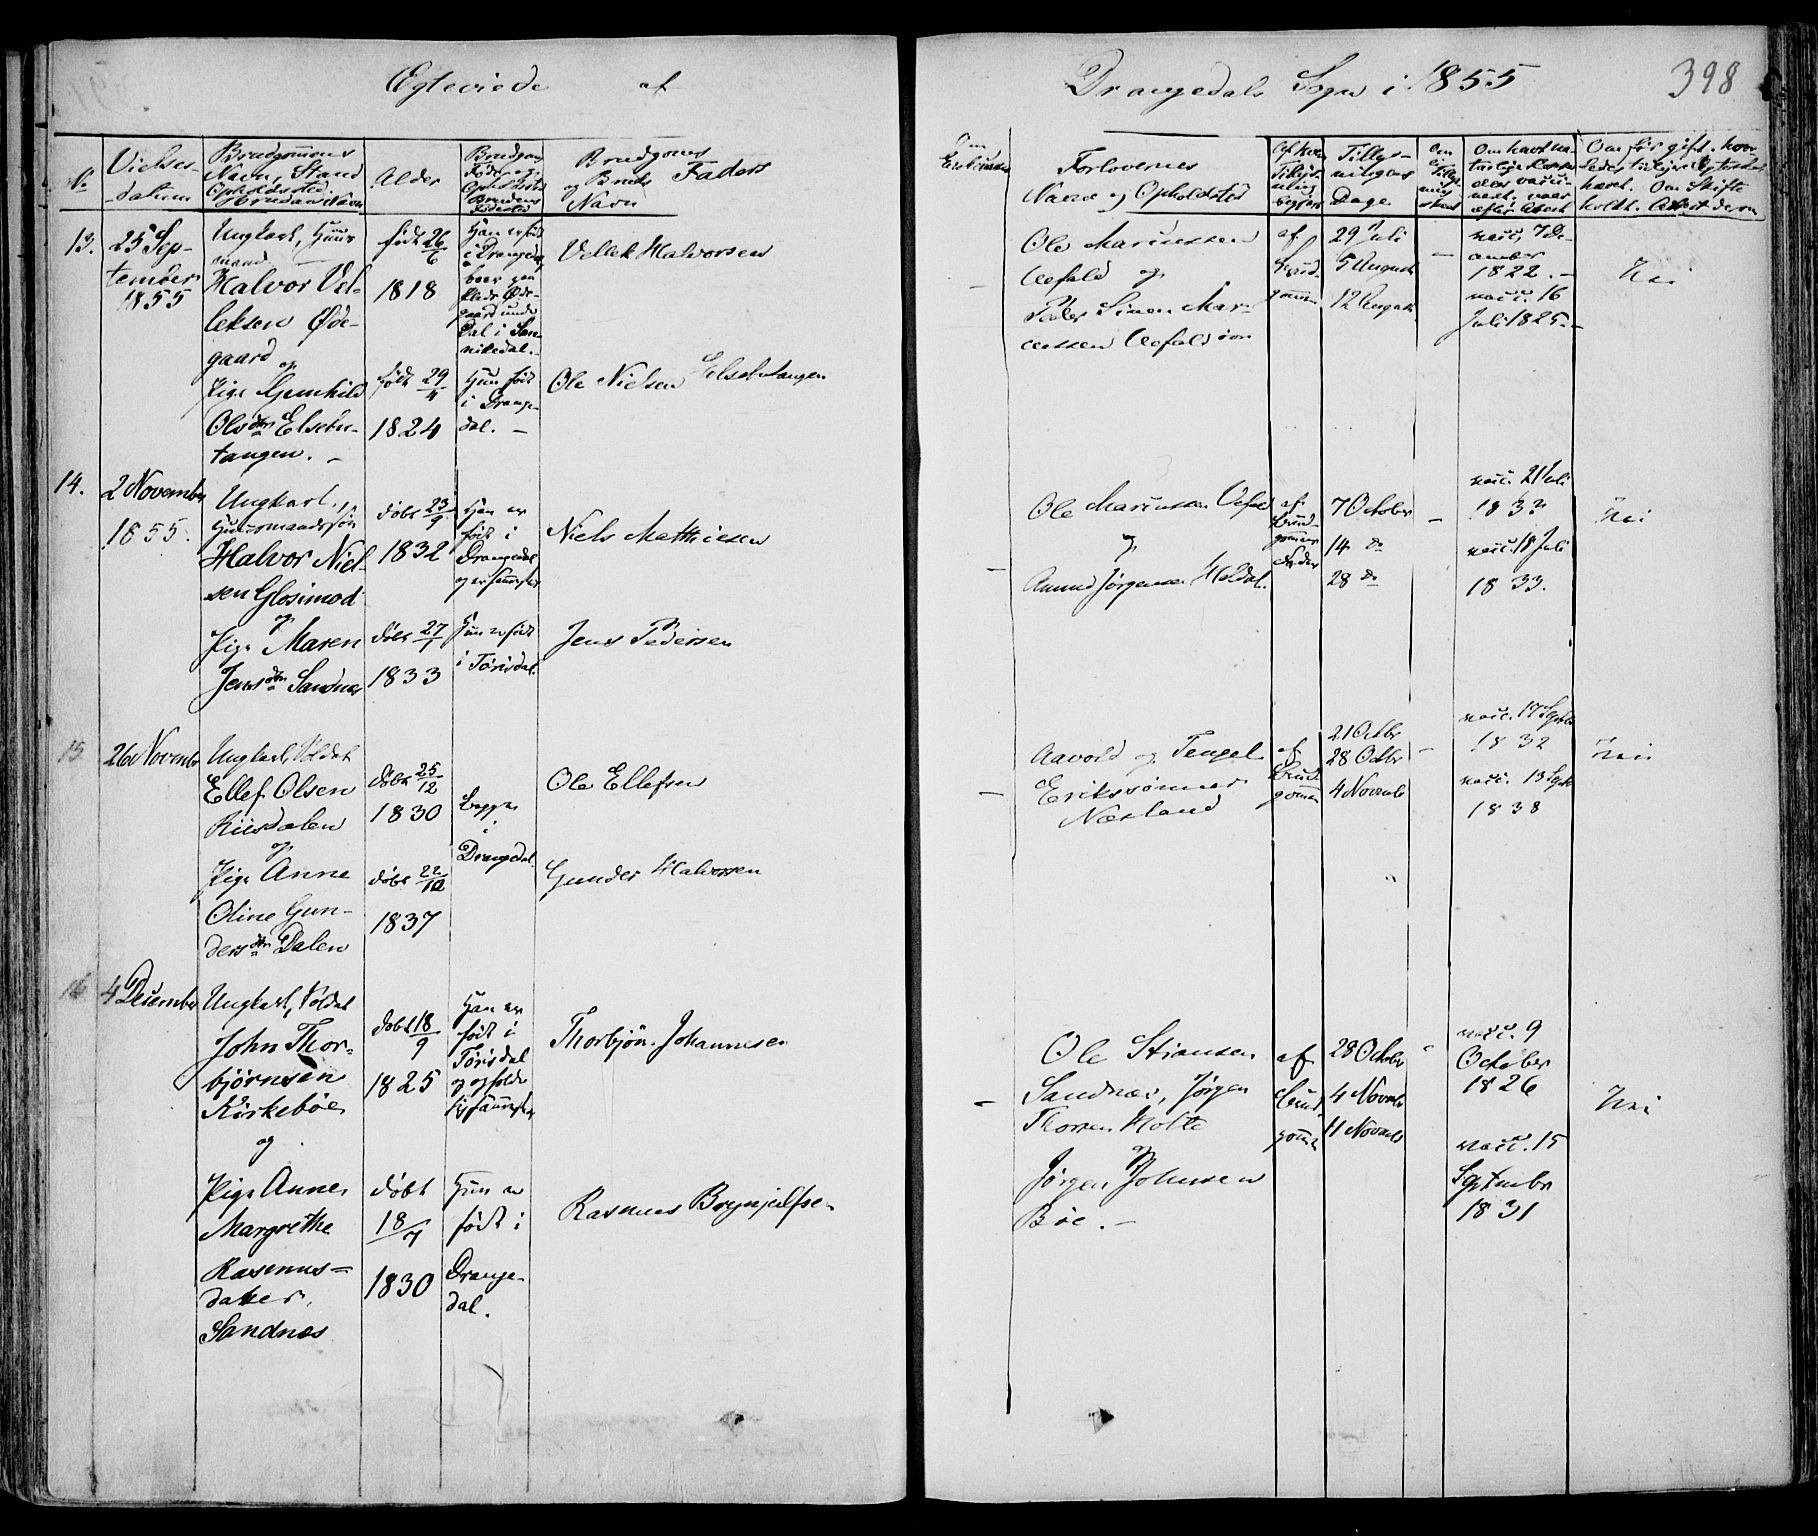 Ægteviede af
Drangedals Sogn i 1855
398
No
Vielses-
datum
Brudgommens
Navn, Stand
Opholdssted
Alder
Brudgoms
Føde- og
Opholdssted
Brudens
Fødested
Brudgoms
og Bruds Faders
Navn
13.
25 Sep-
tember
1855
Ungkarl, Huus
mand
Halvor Vel-
leksen Øde-
gaard
og
Pige Gunhild
Olsdtr Elsebu-
tangen. -
født 26/6
1818
født 29/4
1824
Han er født
i Drangedal
boer paa
Plads Øde-
gaard under
Dal i San-
nikedal. -
Hun født
i Drange-
dal. -
Vellek Halvorsen
Ole Nielsen Elsebutangen
14.
2 November
1855.
Ungkarl,
Huusmandssøn
Halvor Niel-
sen Glosimod
og
Pige Maren
Jensdtr Sandnes
døbt 23/9
1832
døbt 27/1
1833
Han er
født i
Drangedal
Hun er født
i Tørisdal.
Niels Matthiesen
Jens Pedersen
15
26 Novembr
Ungkarl, Soldat
Ellef Olsen
Riisdalen
og
Pige Anne
Oline Gun-
dersdtr Dalen
døbt 25/12
1830
døbt 22/10
1837
Begge
i
Drangedal.
Ole Ellefsen
Gunder Halvorsen
16
4 December
Ungkarl, Soldat
John Thor-
bjørnsen
Kirkebøe
og
Pige Anne
Margrethe
Rasmus-
datter,
Sandnes
døbt 18/9
1825
døbt
18/7
1830
Han er
født i
Tørisdal
Hun er
født i
Drange-
dal.
Thorbjøn Johannesen
Rasmus Brynjulfse
Forlovernes
Navne og Opholdsted
Tillys-
ningens
Dage
Ole Mariussen
Uefald og
Peder Simen Mar-
iussen Uefald
af
Brud-
gommen
29 Juli
5 August
12 August
-
vacc. 7 De-
cember
1822. -
vacc. 16
Juli 1825. -
Nei
Ole Mariussen
og
Amund Jørgensen Holdal.
af
Brud-
gommens
Fader
7 October
14 do
28 do
-
vacc. 21 Juli
1833
vacc. 18 Juli
1833.
Nei
Aavold og Tengel
Erikssønner
Næsland
af
Brud
gommen
21 Octbr
28 Octbr
4 Novembr
-
vacc. 17 Septbr
1832
vacc. 13 Septbr
1838
Nei
Ole Stiansen
Sandnæs, Jørgen
Thorsen Holte
og
Jørgen Johnsen
Bøe. -
af
Brud
gommen
28 October
4 Novembr
11 Novembr
vacc. 9
October
1826
vacc. 15
Septembr
1831
Nei